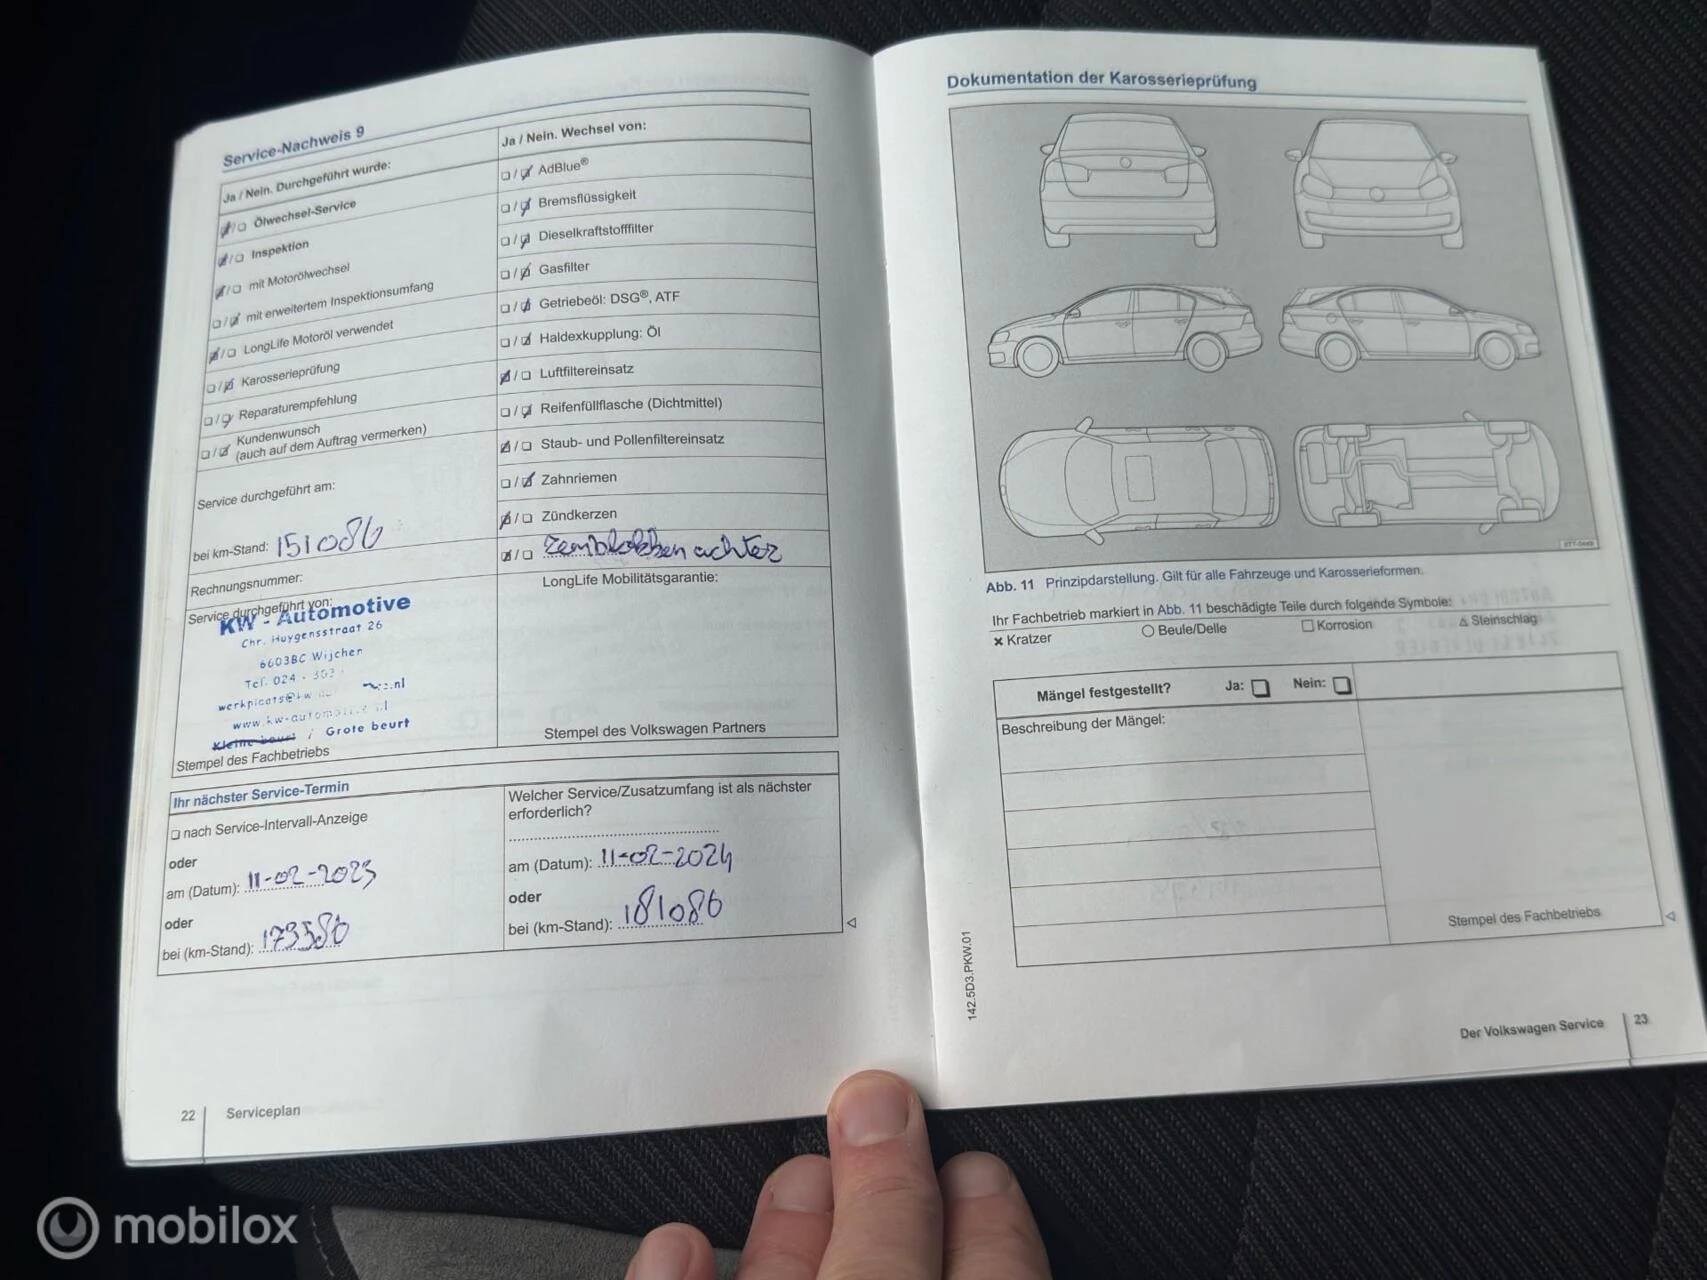 Service-Nachweis 9
Ja / Nein. Durchgeführt wurde:
Ölwechsel-Service
Inspektion
mit Motorölwechsel
mit erweitertem Inspektionsumfang
LongLife Motoröl verwendet
Karosserieprüfung
Reparaturempfehlung
Kundenwunsch
(auch auf dem Auftrag vermerken)
Service durchgeführt am:
bei km-Stand: 151086
Rechnungsnummer:
Service durchgeführt von:
KW - Automotive
Chr. Huygensstraat 26
6603BC Wijchen
Tel. 024 - 303
.nl
www.kw-automotive.nl
Kleine beurt / Grote beurt
Stempel des Fachbetriebs
Ja / Nein. Wechsel von:
AdBlue®
Bremsflüssigkeit
Dieselkraftstofffilter
Gasfilter
Getriebeöl: DSG®, ATF
Haldexkupplung: Öl
Luftfiltereinsatz
Reifenfüllflasche (Dichtmittel)
Staub- und Pollenfiltereinsatz
Zahnriemen
Zündkerzen
remblokken achter
LongLife Mobilitätsgarantie:
Stempel des Volkswagen Partners
Ihr nächster Service-Termin
nach Service-Intervall-Anzeige
oder
am (Datum): 11-02-2023
oder
bei (km-Stand): 173586
Welcher Service/Zusatzumfang ist als nächster
erforderlich?
am (Datum): 11-02-2024
oder
bei (km-Stand): 181086
22 Serviceplan
Dokumentation der Karosserieprüfung
Abb. 11 Prinzipdarstellung. Gilt für alle Fahrzeuge und Karosserieformen.
Ihr Fachbetrieb markiert in Abb. 11 beschädigte Teile durch folgende Symbole:
Kratzer Beule/Delle Korrosion Steinschlag
Mängel festgestellt? Ja: Nein:
Beschreibung der Mängel:
Stempel des Fachbetriebs
142.5D3.PKW.01
Der Volkswagen Service 23
mobilox